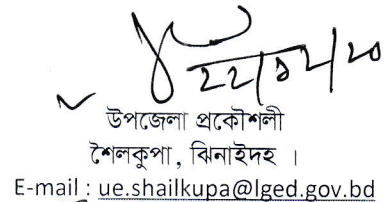 ২২/৯/২০
উপজেলা প্রকৌশলী
শৈলকুপা, ঝিনাইদহ ।
E-mail : ue.shailkupa@lged.gov.bd